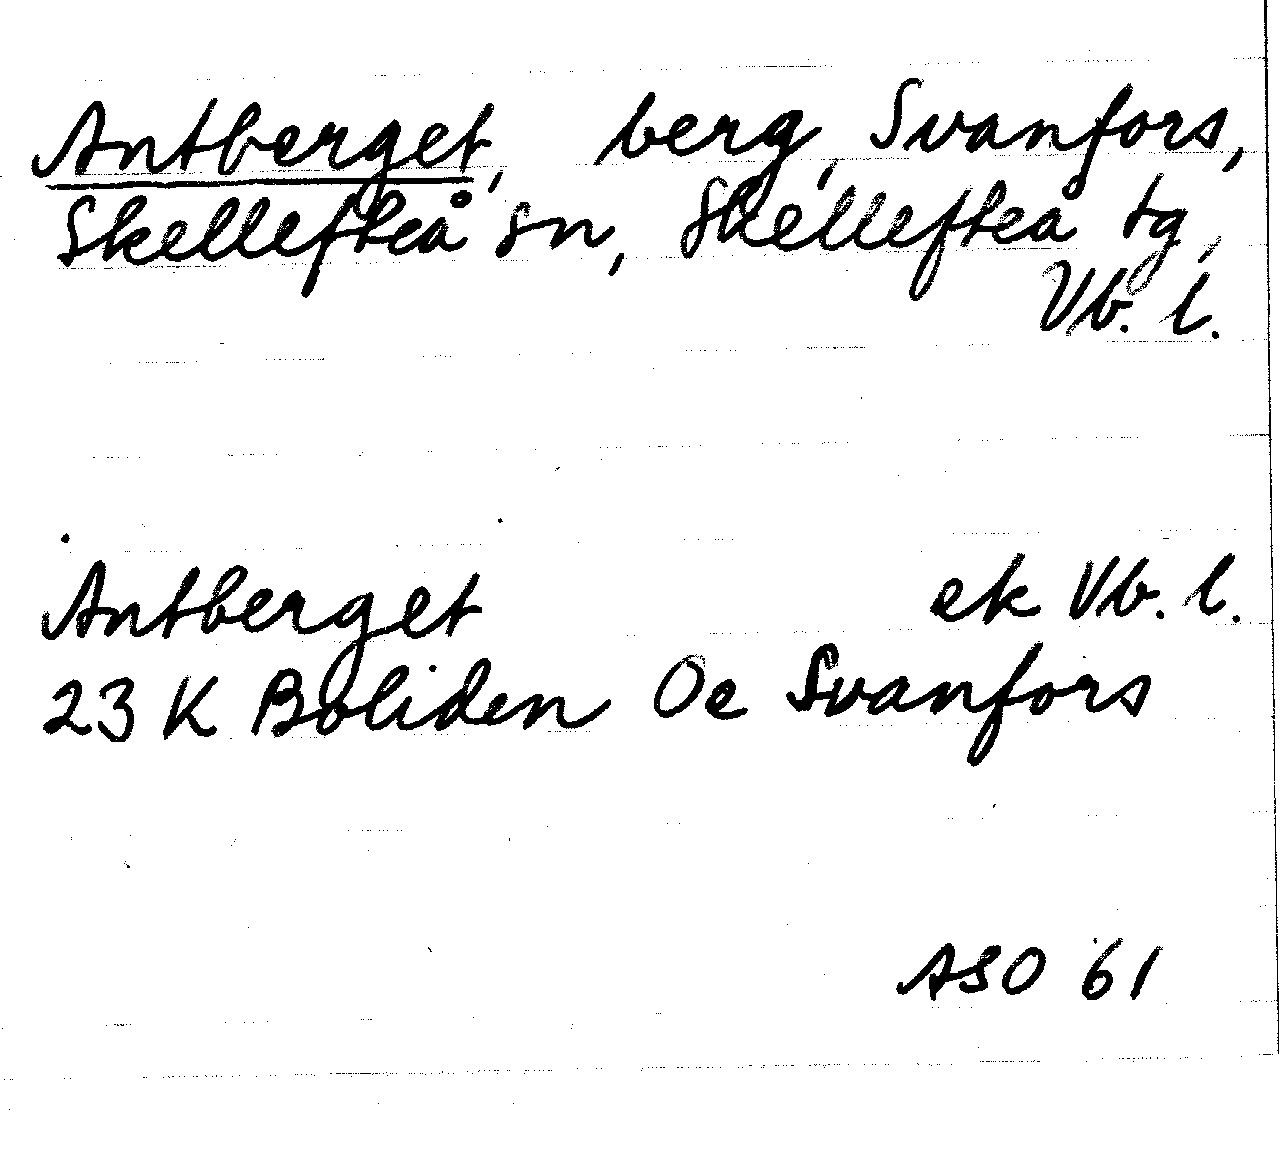 Antberget, berg, Svanfors,
Skellefteå sn, Skellefteå tg,
Vb. l.
Antberget ek Vb. l.
23 K Boliden Oe Svanfors
ASO 61